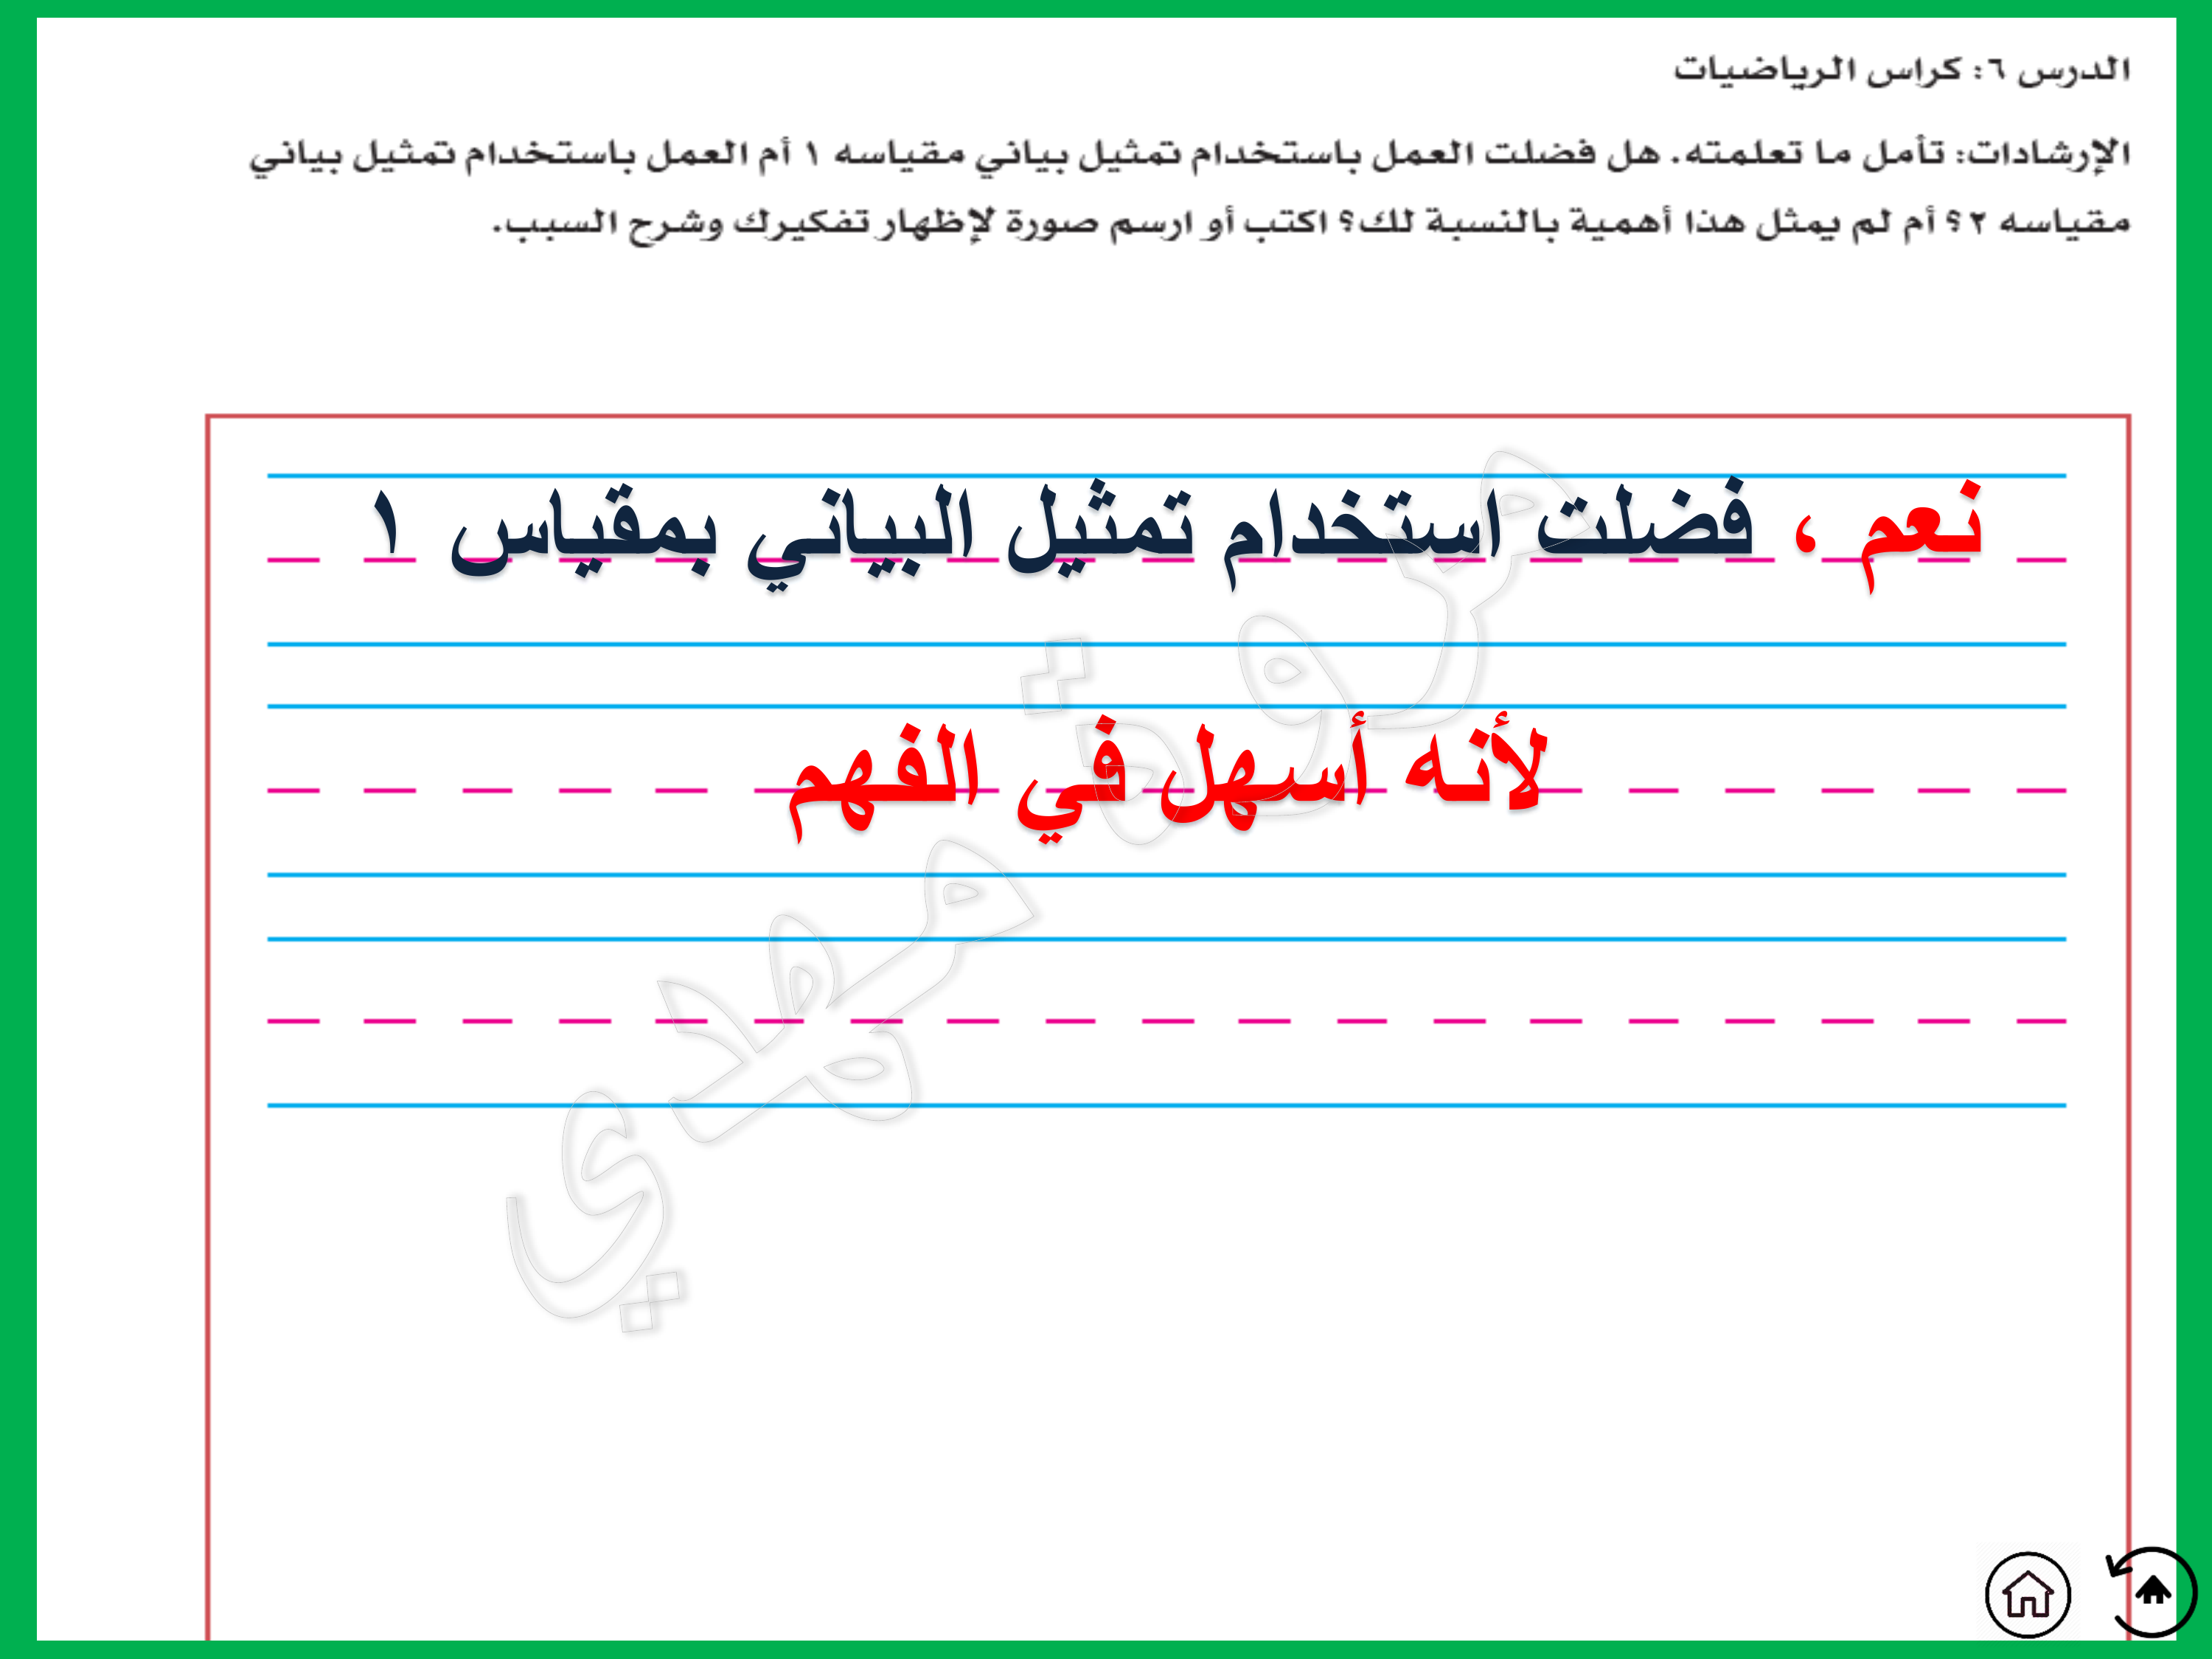 الدرس ٦: كراس الرياضيات
الإرشادات: تأمل ما تعلمته. هل فضلت العمل باستخدام تمثيل بياني مقياسه ١ أم العمل باستخدام تمثيل بياني
مقياسه ٢؟ أم لم يمثل هذا أهمية بالنسبة لك؟ اكتب أو ارسم صورة لإظهار تفكيرك وشرح السبب.
نعم ، فضلت استخدام تمثيل البياني بمقياس ١
لأنه أسهل في الفهم
مروة مهدي